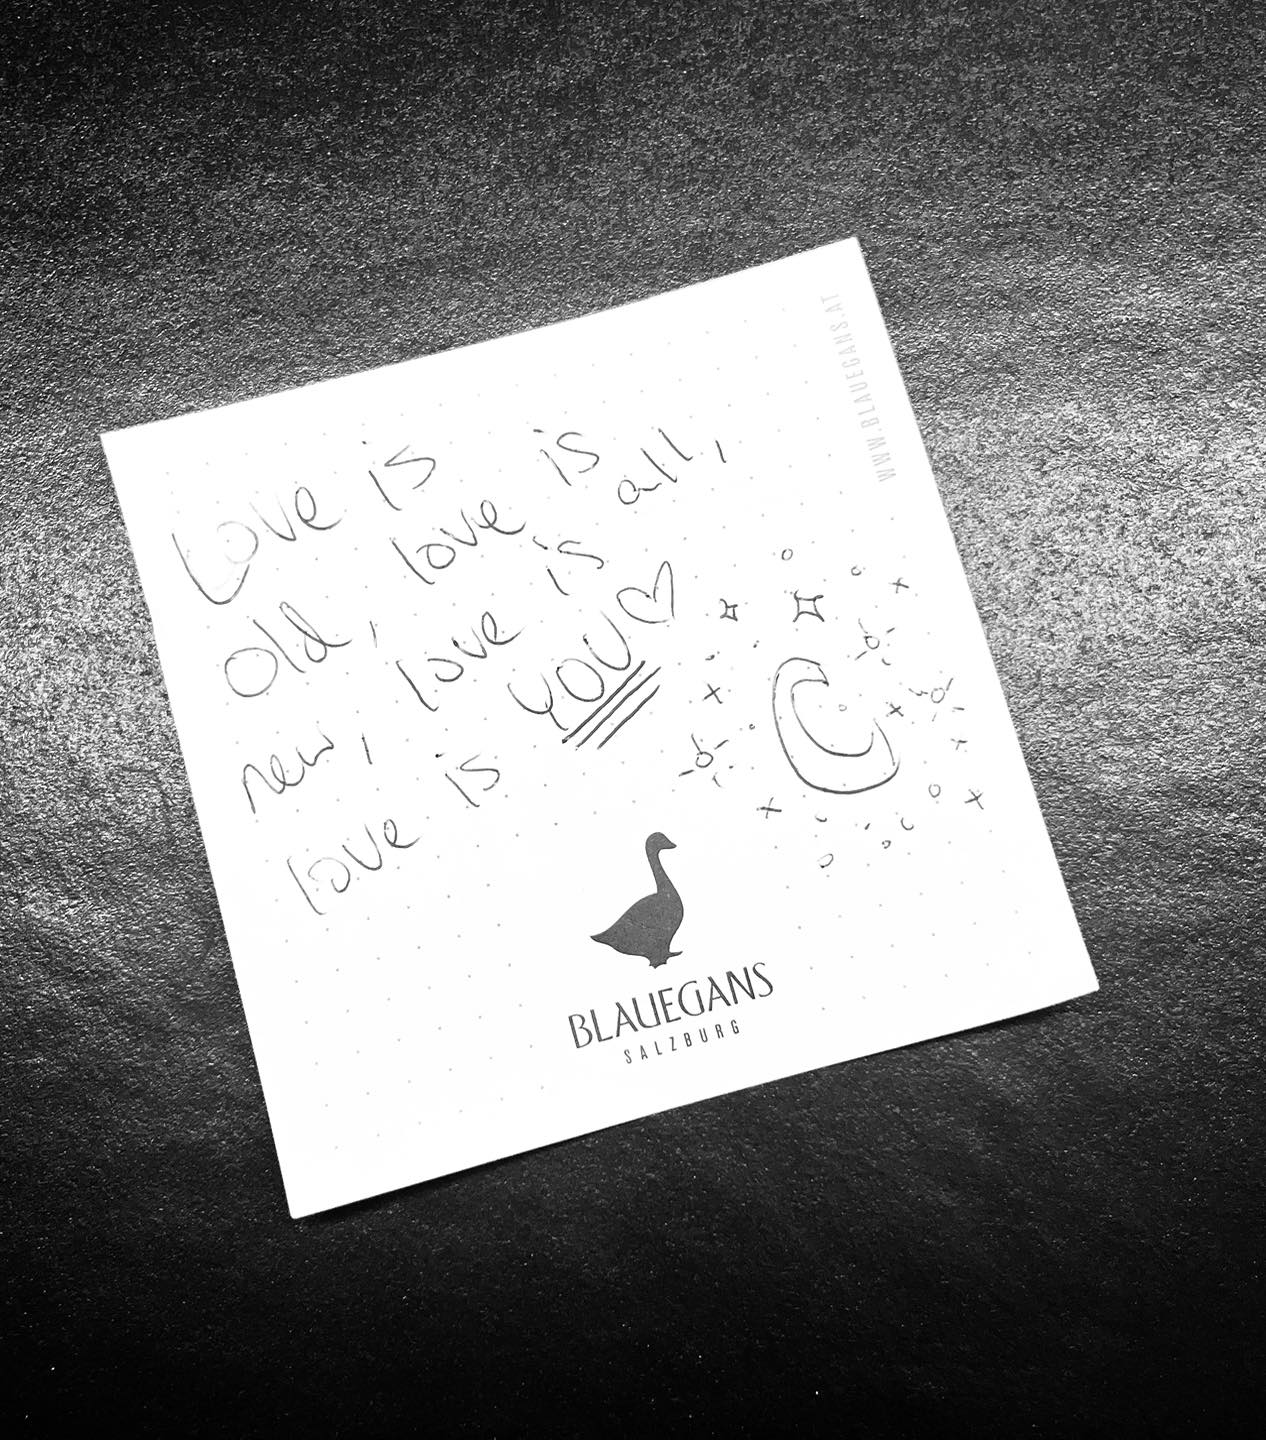 Love is
old, love is
new, love is all,
love is YOU
WWW.BLAUEGANS.AT
BLAUEGANS
SALZBURG